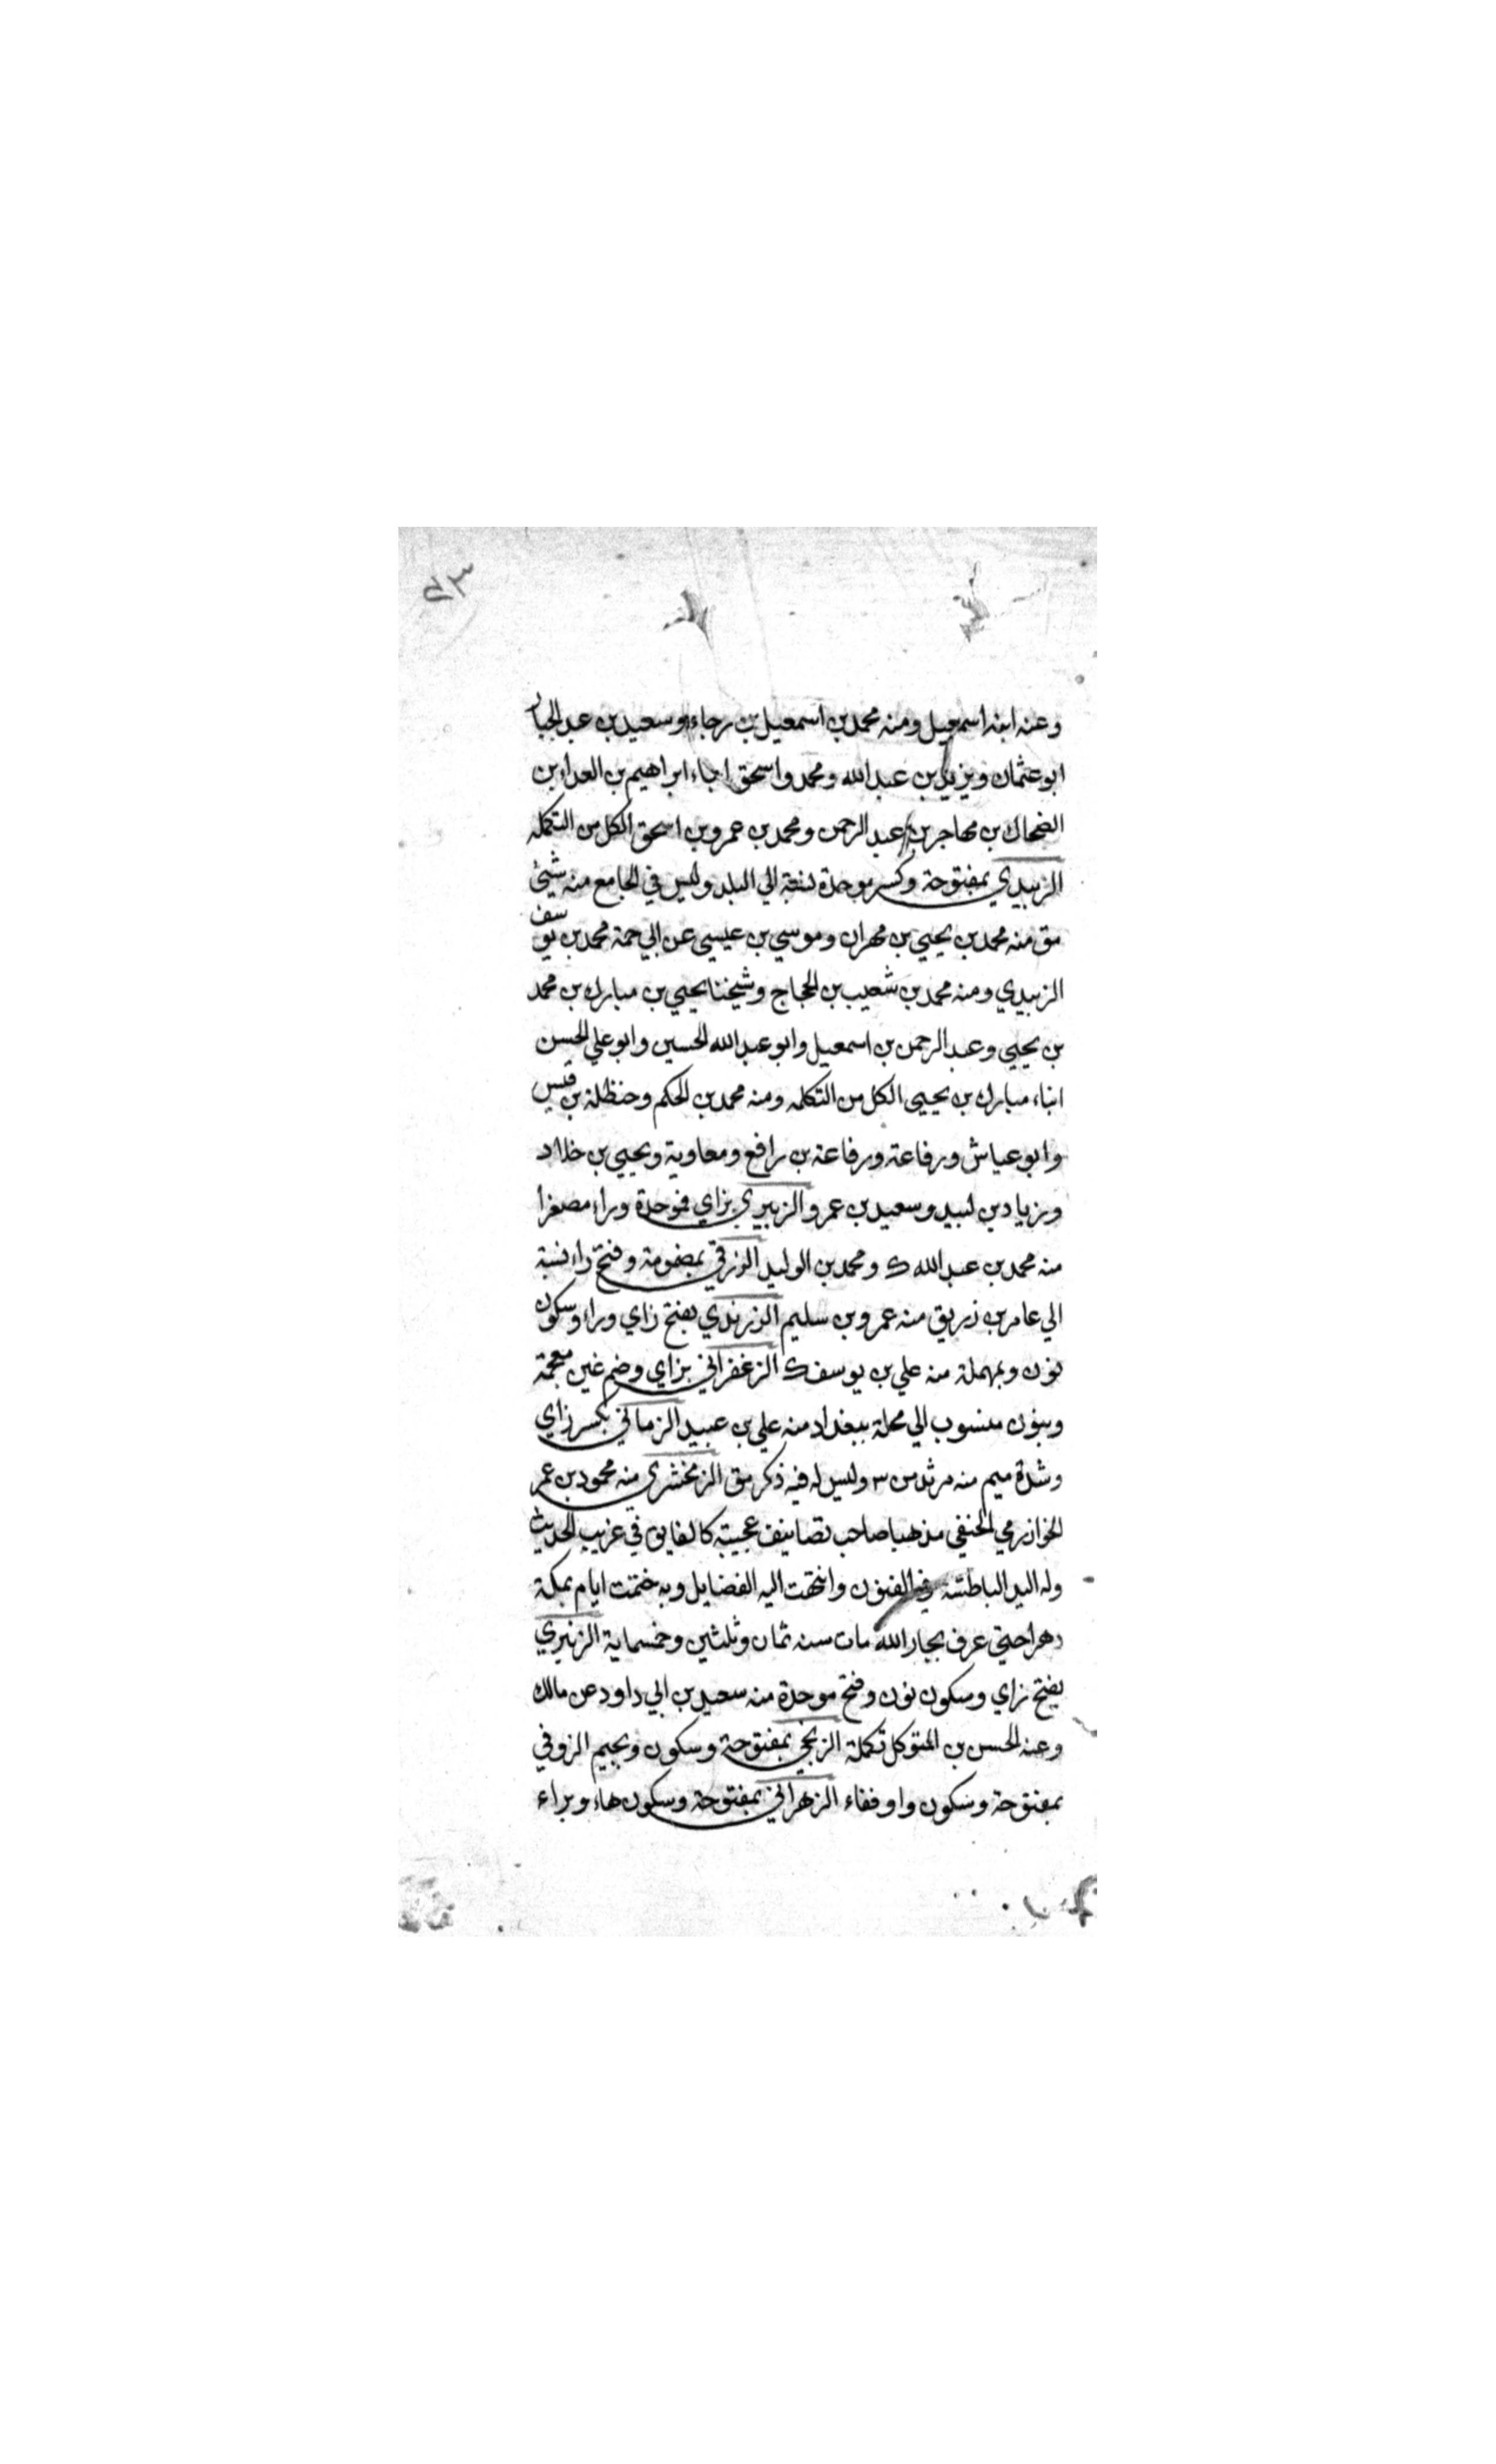 ٤٣
وعنه ابنه اسمعيل ومنه محمد بن اسمعيل بن رجاء وسعيد بن عبد الجبار
ابو عثمان ويزيد بن عبد الله ومحمد واسحق ابناء ابراهيم بن العداء بن
الضحاك بن مهاجر بن عبد الرحمن ومحمد بن عمرو بن اسحق الكل من التكمله
الزبيدي بمفتوحة وكسر موحدة نسبة الي البلد وليس في الجامع منه شيئ
مق منه محمد بن يحيي بن مهران وموسي بن عيسي عن ابي حمة محمد بن يوسف
الزبيدي ومنه محمد بن شعيب بن الحجاج وشيخنا يحيي بن مبارك بن محمد
بن يحيي وعبد الرحمن بن اسمعيل وابو عبد الله الحسين وابو علي الحسن
ابناء مبارك بن يحيى الكل من التكلمه ومنه محمد بن الحكم وحنظلة بن قيس
وابو عياش ورفاعة ورفاعة بن رافع ومعاوية ويحيي بن خلاد
وزياد بن لبيد وسعيد بن عمرو الزبيري بزاي فموحدة وراء مصغرا
منه محمد بن عبد الله ك ومحمد بن الوليد الزرقي بمضمومة وفتح راء نسبة
الي عامر بن زريق منه عمرو بن سليم الزرندي بفتح زاي وراء وسكون
نون وبمهملة منه علي بن يوسف ك الزغفراني بزاي وضم غين معجمة
وبنون منسوب الي محلة ببغداد منه علي بن عبيد الزماني بكسر زاي
وشدة ميم منه مرثد من ٣ وليس له فيه ذكر مق الزمخشري منه محمود بن عمر
الخوازرمي الحنفي مذهبا صاحب تصانيف عجيبة كالفايق في غريب الحديث
وله اليد الباطشة في الفنون وانتهت اليه الفضايل وبه ختمت ايام بمكة
دهرا حتي عرف بجار الله مات سنه ثمان وثلثين وخمسماية الزنبري
بفتح زاي وسكون نون وفتح موحدة منه سعيد بن ابي داود عن مالك
وعنه الحسن بن المتوكل تكملة الزنجي بمفتوحة وسكون وبجيم الزوفي
بمفتوحة وسكون واو ففاء الزهراني بمفتوحة وسكون هاء وبراء